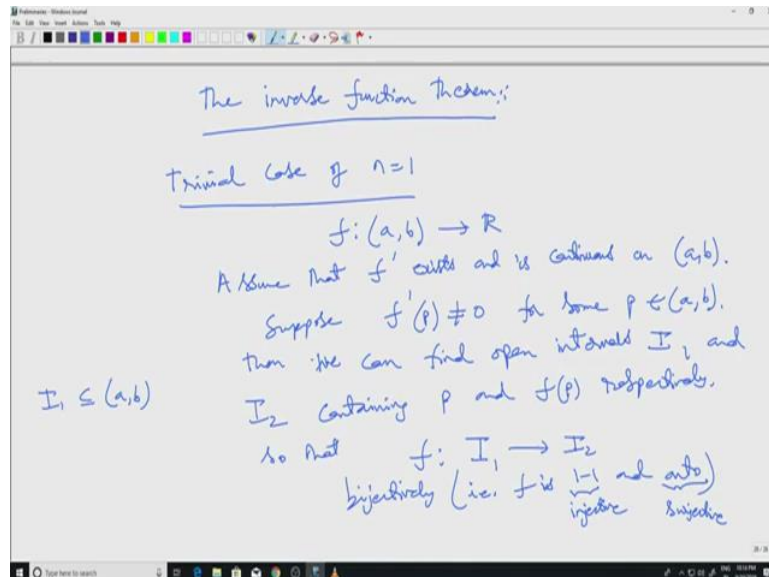 Preliminaries - Windows Journal
File Edit View Insert Actions Tools Help
The inverse function Theorem::
Trivial Case of n=1
f: (a,b) → R
Assume that f' exists and is continuous on (a,b).
Suppose f'(p) ≠ 0 for some p ∈ (a,b).
then we can find open intervals I₁ and
I₁ ⊆ (a,b)
I₂ containing p and f(p) respectively.
so that f: I₁ → I₂
bijectively (i.e. f is 1-1 and onto)
injective surjective
Type here to search